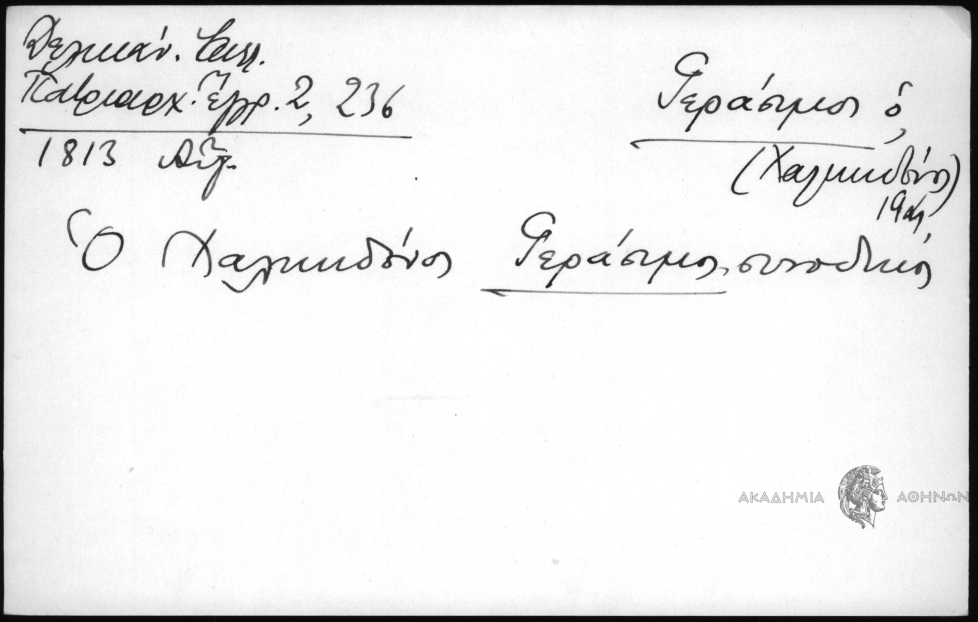 Δελικάν. Καλλ.
Πατριαρχ. Ἔγγρ. 2, 236
1813 Αὔγ.
Γεράσιμος ὁ,
(Χαλκηδόνος)
19 αἰ.
Ὁ Χαλκηδόνος Γεράσιμος, συνοδικός
ΑΚΑΔΗΜΙΑ ΑΘΗΝΩΝ